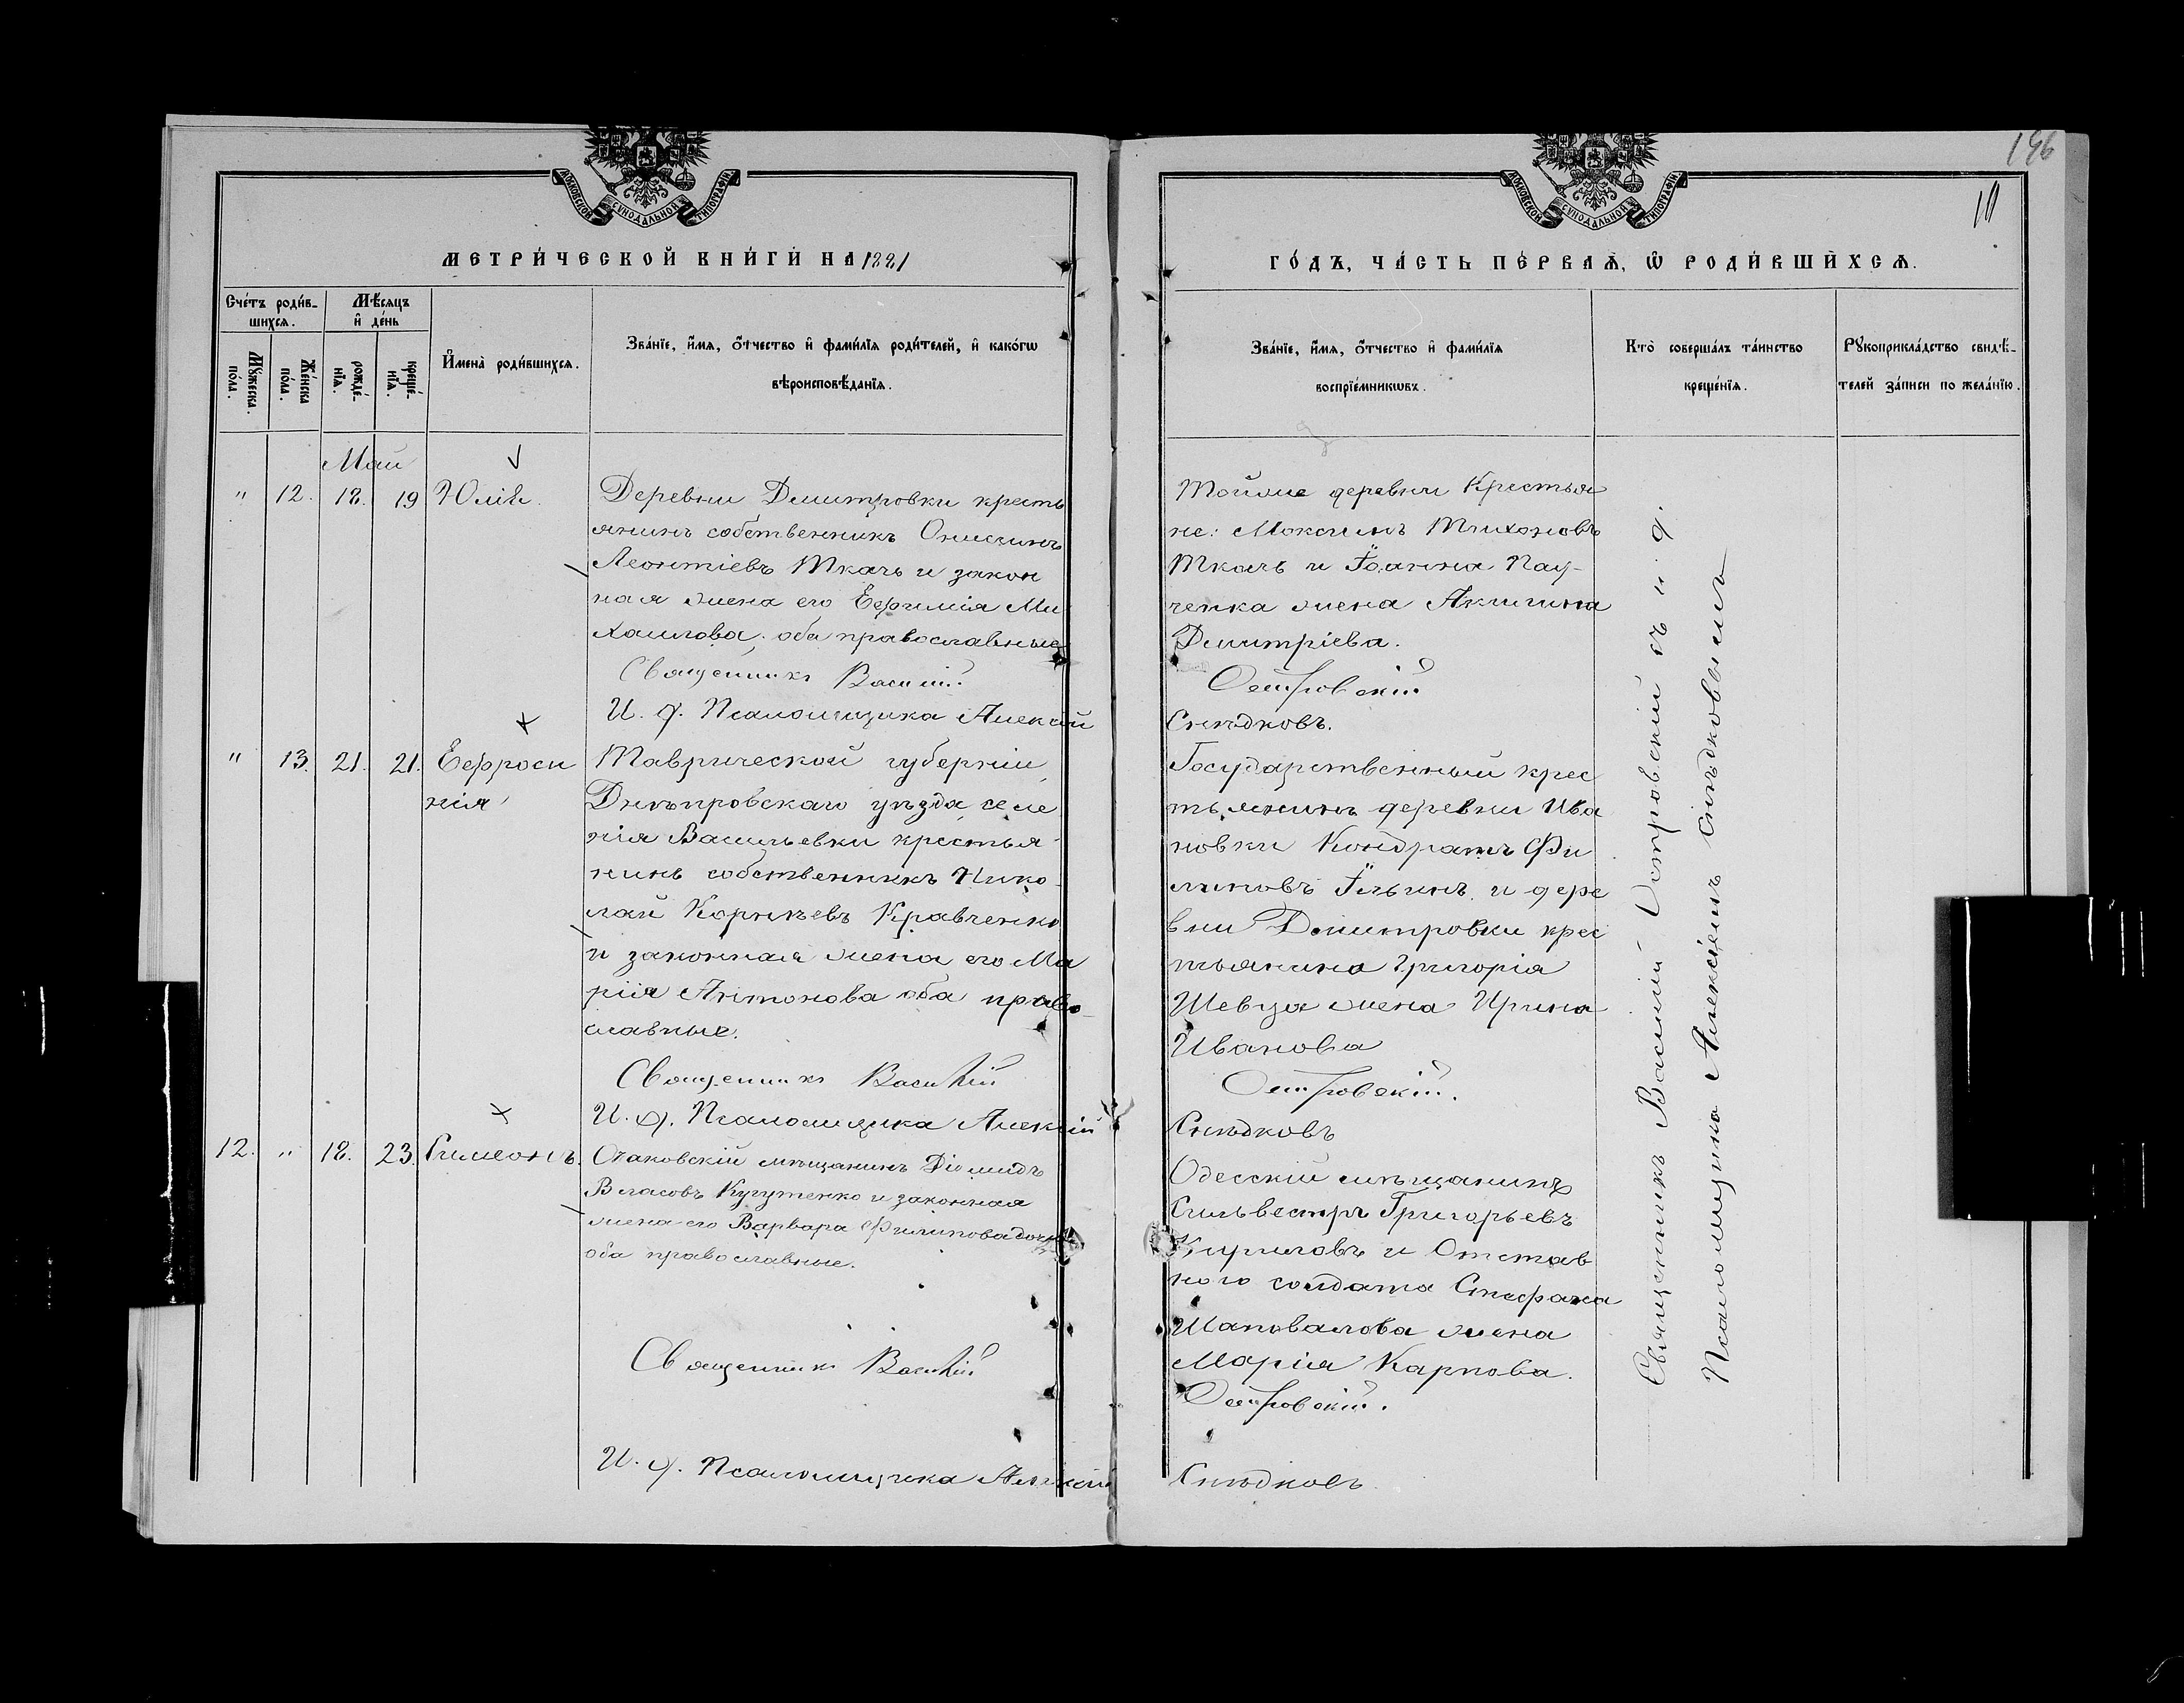 МОСКОВСКОЙ СѴНОДАЛЬНОЙ ТИПОГРАФІИ
МЕТРИ́ЧЕСКОЙ КНИ́ГИ НА 1881
Сче́тъ роди́в-
шихсѧ.
Мѣ́сѧцъ
и҆ де́нь
Мꙋ́жеска
по́ла.
Же́нска
по́ла.
рожде́-
нїѧ.
креще́-
нїѧ.
И҆мена̀ роди́вшихсѧ.
Зва́нїе, и҆́мѧ, ѻ҆́тчество и҆ фами́лїѧ роди́телей, и҆ како́гѡ
вѣроисповѣ́данїѧ.
Май
" 12. 18. 19 Юлія.
Деревни Димитровки кресть
янинъ собственникъ Онисимъ
Леонтіевъ Ткачъ и закон
ная жена его Евфимія Ми
хаилова; оба православные
Священникъ Василій
И. д. Псаломщика Алексѣй
" 13. 21. 21. Евфроси
нія
Таврической губерніи
Днѣпровскаго уѣзда, селе
нія Васильевки крестья-
нинъ собственникъ Нико-
лай Корнѣевъ Кравченко
и законная жена его Ма
рія Антонова оба право
славные.
Священникъ Василій
И. д. Псаломщика Алексѣй
12. " 18. 23. Симеонъ.
Очаковскій мѣщанинъ Діомидъ
Власовъ Кугутенко и законная
жена его Варвара Филипова
оба православные.
Священникъ Василій
И. д. Псаломщика Алексѣй
196
10
МОСКОВСКОЙ СѴНОДАЛЬНОЙ ТИПОГРАФІИ
ГО́ДЪ, ЧА́СТЬ ПЕ́РВАѦ, Ѡ҆ РОДИ́ВШИХСѦ.
Зва́нїе, и҆́мѧ, ѻ҆́тчество и҆ фами́лїѧ
воспрїе́мникѡвъ.
Кто̀ соверша́лъ та́инство
креще́нїѧ.
Рꙋкоприкла́дство свидѣ́-
телей за́писи по жела́нїю.
Тойже деревни Крестья
не: Максимъ Тихоновъ
Ткачъ и Іоанна Пау-
ченка жена Акилина
Димитріева.
Островскій
Снѣдковъ.
Государственный крес
тьянинъ деревни Ива
новки Кондратъ Фи
липовъ Ильинъ. и дере
вни Димитровки крес
тьянина Григорія
Шевца жена Ирина
Иванова
Островскій.
Снѣдковъ
Одесскій мѣщанинъ
Сильвестръ Григорьевъ
Кириловъ и Отстав
ного солдата Стефана
Шаповалова жена
Марія Карпова.
Островскій.
Снѣдковъ
Священникъ Василій Островскій съ и. д.
Псаломщика Алексѣемъ Снѣдковымъ